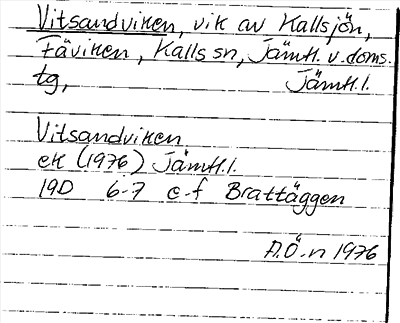 Vitsandviken, vik av Kallsjön,
Fäviken, Kalls sn, Jämtl. v. doms.
tg, Jämtl.l.
Vitsandviken
ek (1976) Jämtl.l.
19D 6-7 e-f Brattäggen
A.Ö-n 1976